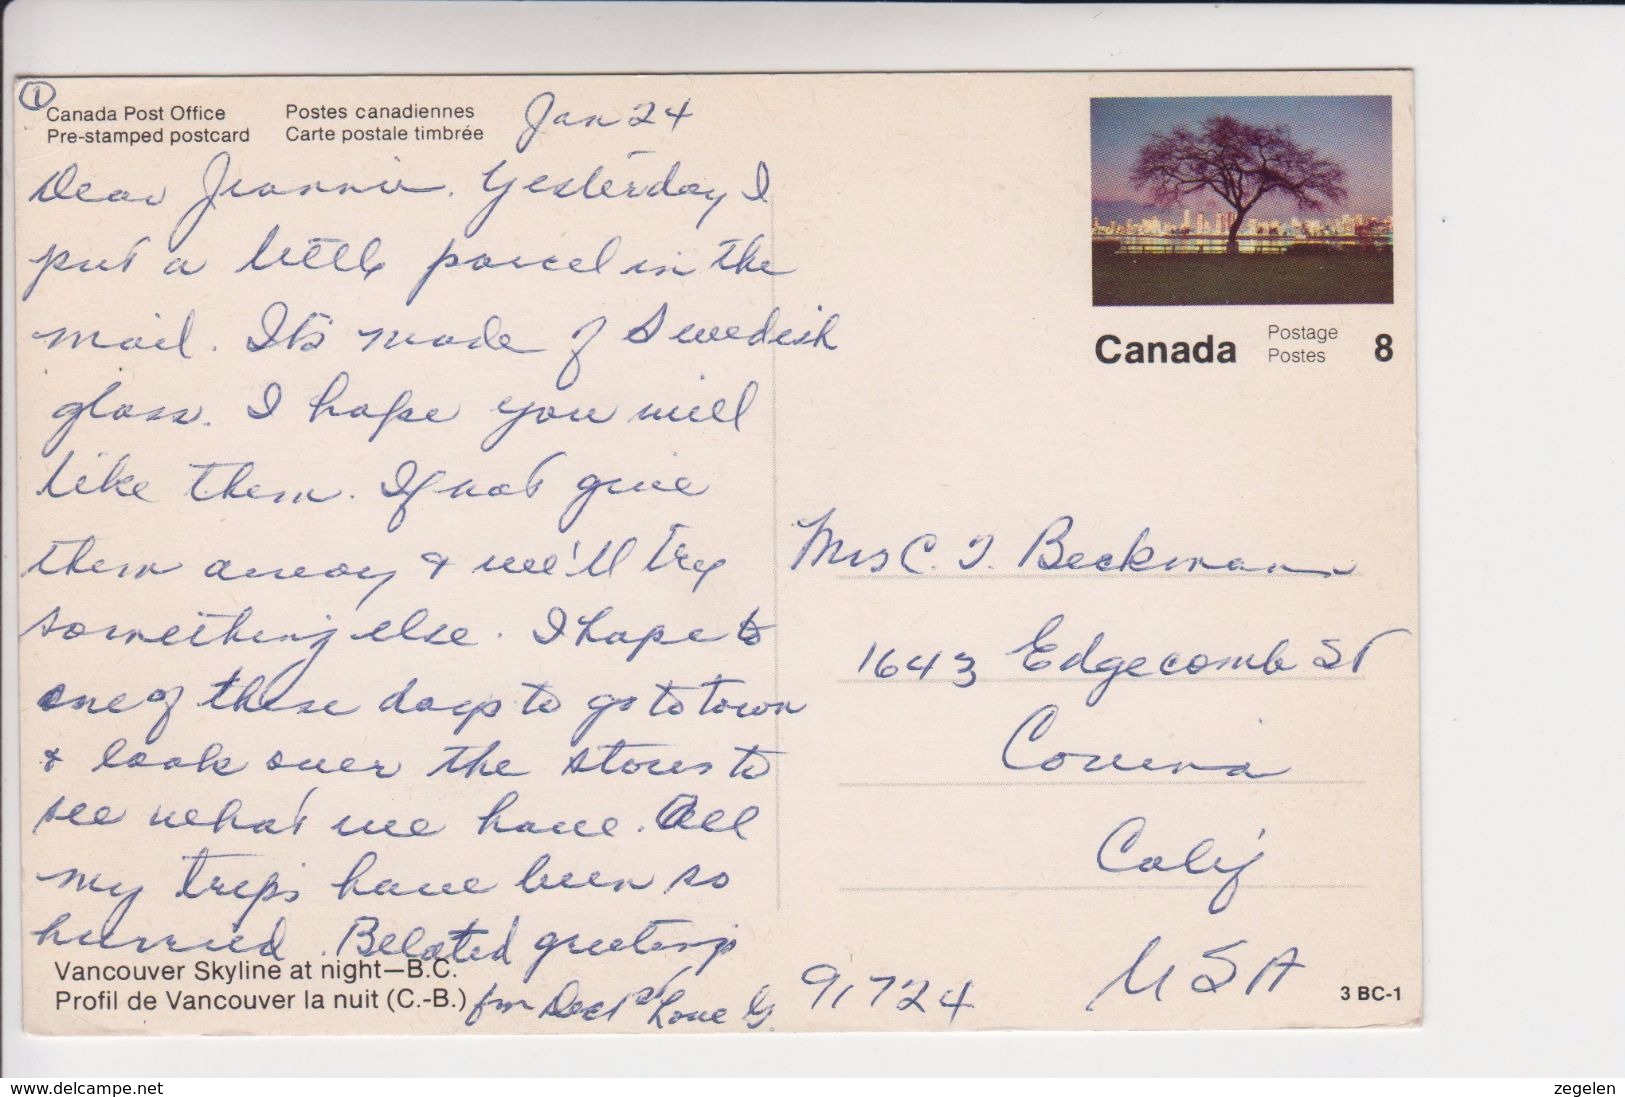 ①
Canada Post Office
Pre-stamped postcard
Postes canadiennes
Carte postale timbrée
Jan 24
Dear Jeannie. Yesterday I
put a little parcel in the
mail. Its made of Swedish
glass. I hope you will
like them. If not give
them away & we'll try
something else. I hope to
one of these days to go to town
& look over the stores to
see what we have. All
my trips have been so
hurried. Belated greetings
for Dec 1st Love G.
Vancouver Skyline at night—B.C.
Profil de Vancouver la nuit (C.-B.)
Canada
Postage
Postes
8
Mrs C. J. Beckmann
1643 Edgecomb St
Covina
Calif
USA
91724
3 BC-1
www.delcampe.net
zegelen